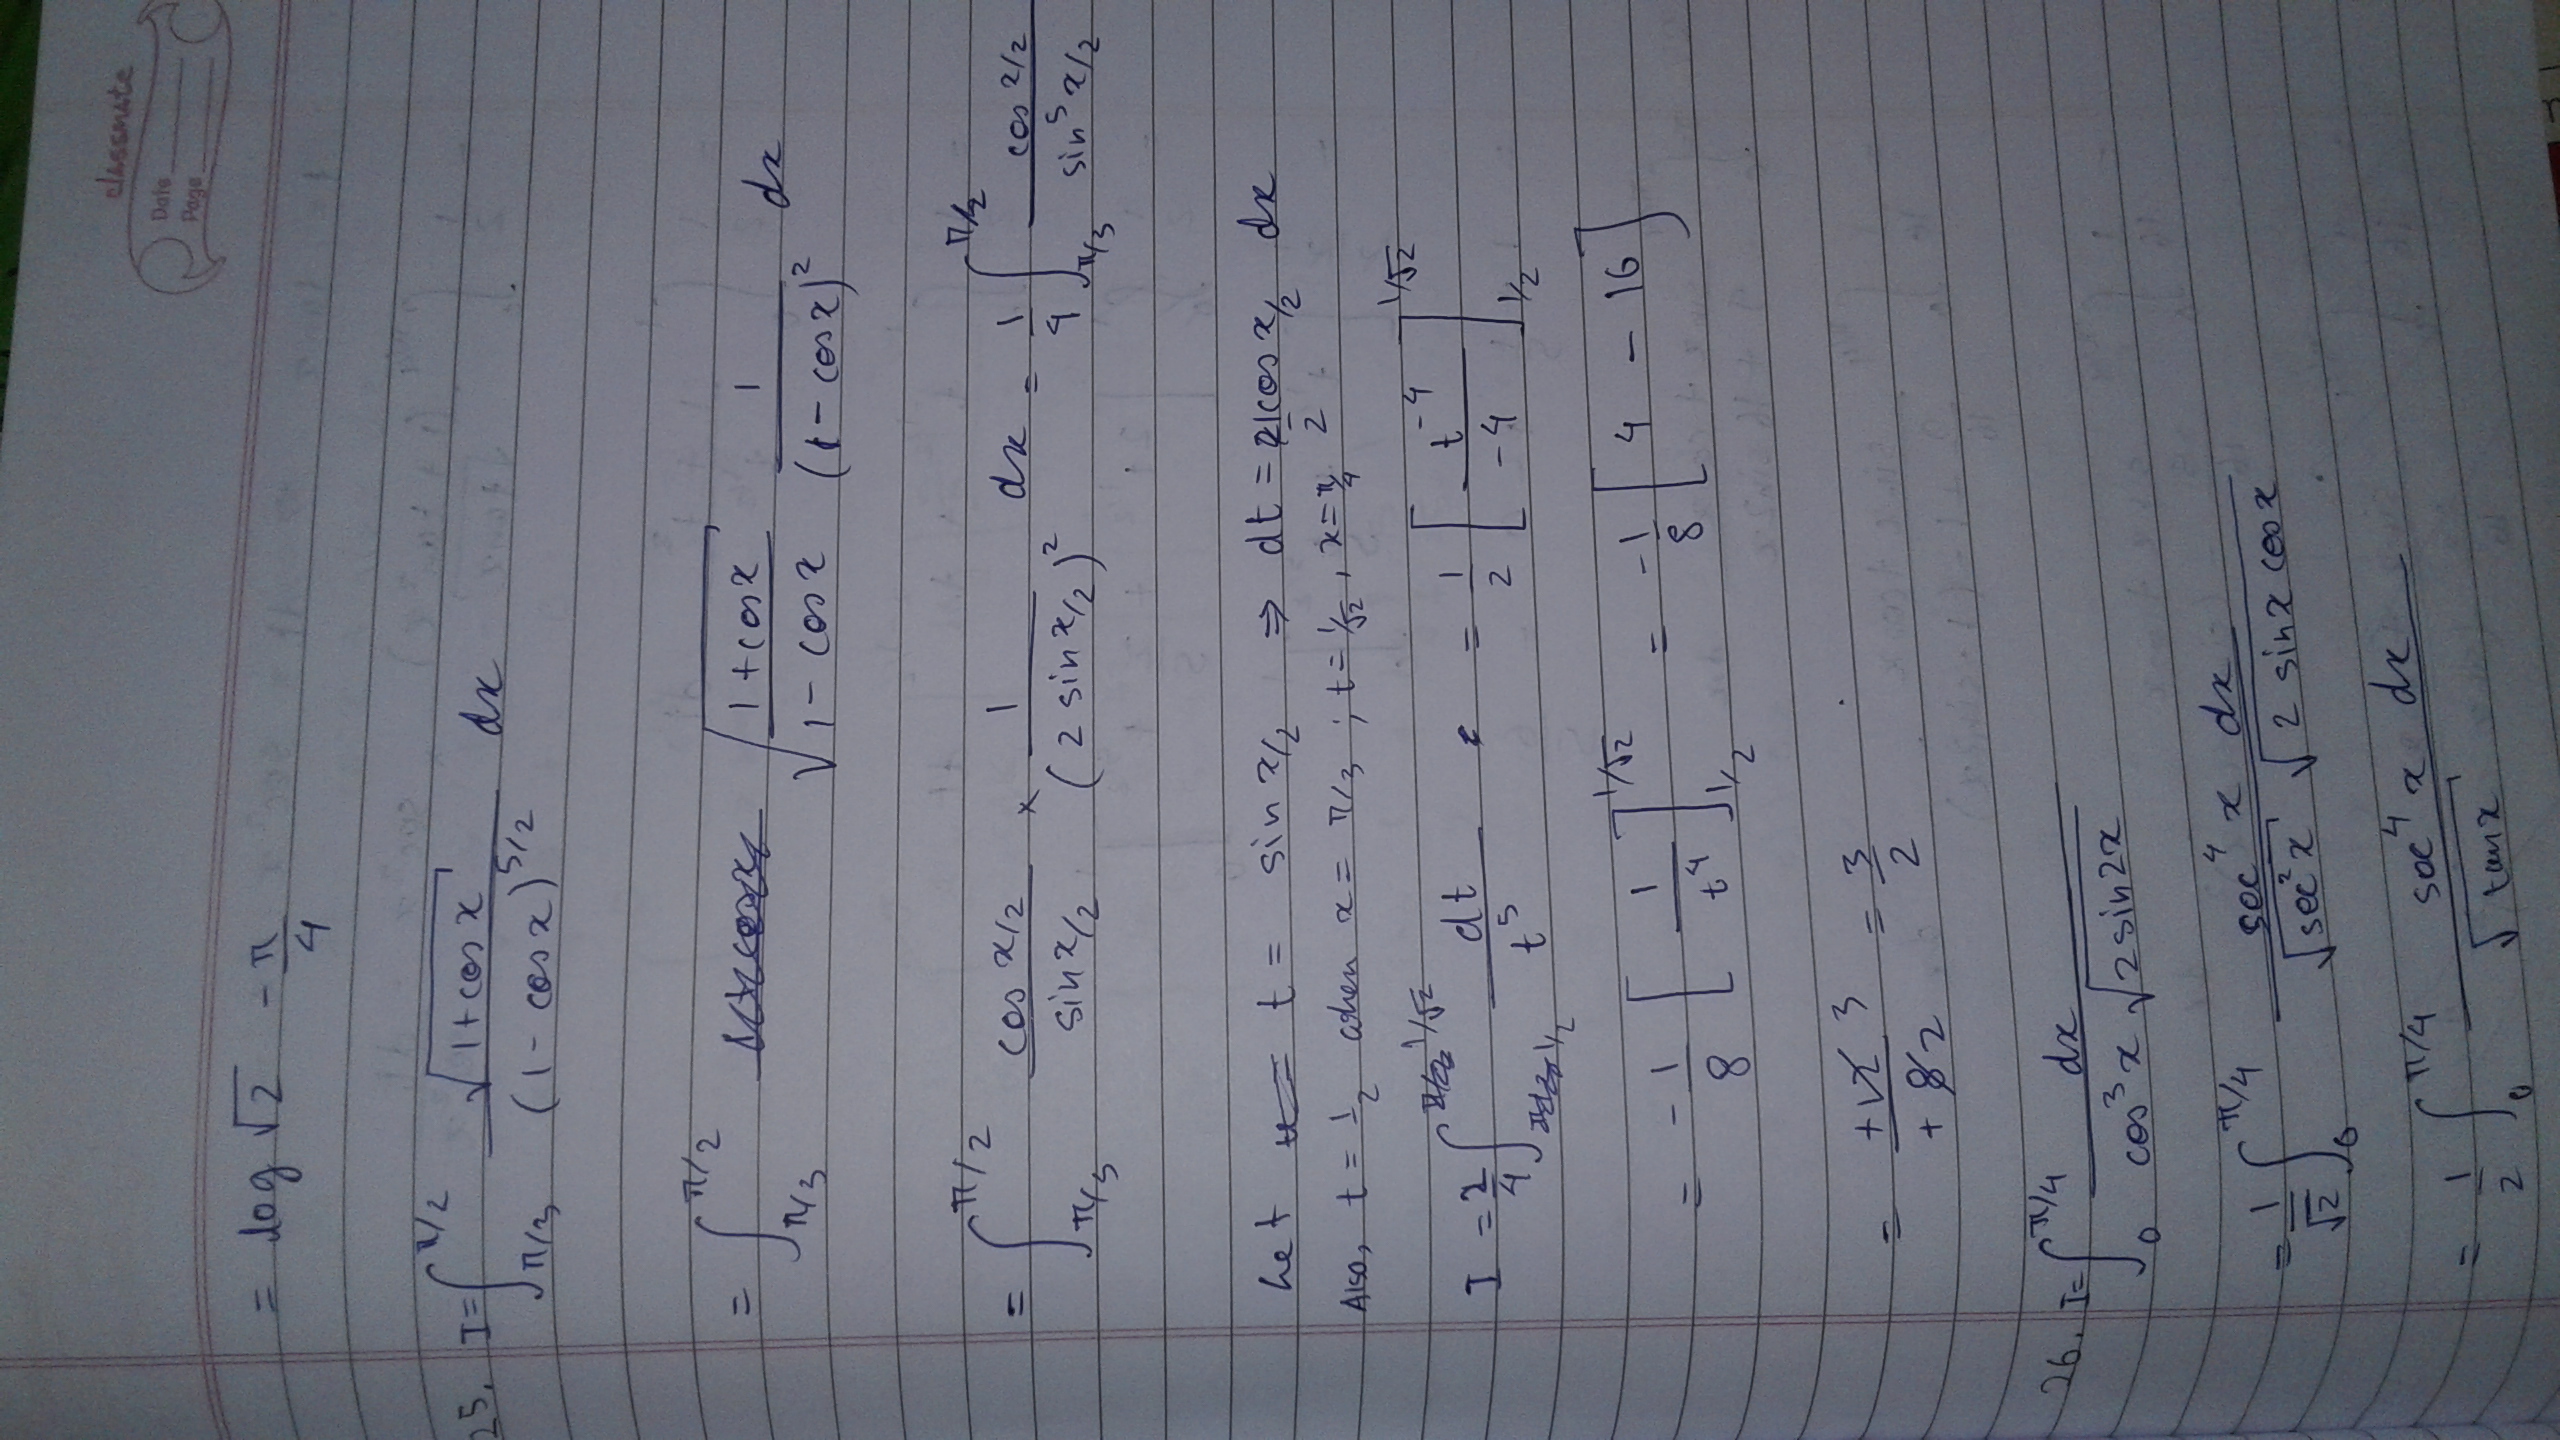 classmate
Date
Page
= log √2 - π/4
25. I = ∫_{π/3}^{π/2} √(1+cos x) / (1-cos x)^{5/2} dx
= ∫_{π/3}^{π/2} √((1+cos x)/(1-cos x)) 1/(1-cos x)^2 dx
= ∫_{π/3}^{π/2} (cos x/2)/(sin x/2) × 1/(2 sin x/2)^2 dx = 1/4 ∫_{π/3}^{π/2} (cos x/2)/(sin^5 x/2)
Let t = sin x/2 ⇒ dt = 1/2 cos x/2 dx
Also, t = 1/2 when x = π/3 ; t = 1/√2, x = π/4
I = 2/4 ∫_{1/2}^{1/√2} dt/t^5 = 1/2 [t^{-4}/-4]_{1/2}^{1/√2}
= -1/8 [1/t^4]_{1/2}^{1/√2} = -1/8 [4 - 16]
= +12 3/+8 2 = 3/2
26. I = ∫_0^{π/4} dx/(cos^3 x √(2 sin 2x))
= 1/√2 ∫_0^{π/4} sec^4 x dx/(√(sec^2 x) √(2 sin x cos x))
= 1/2 ∫_0^{π/4} sec^4 x dx/√(tan x)